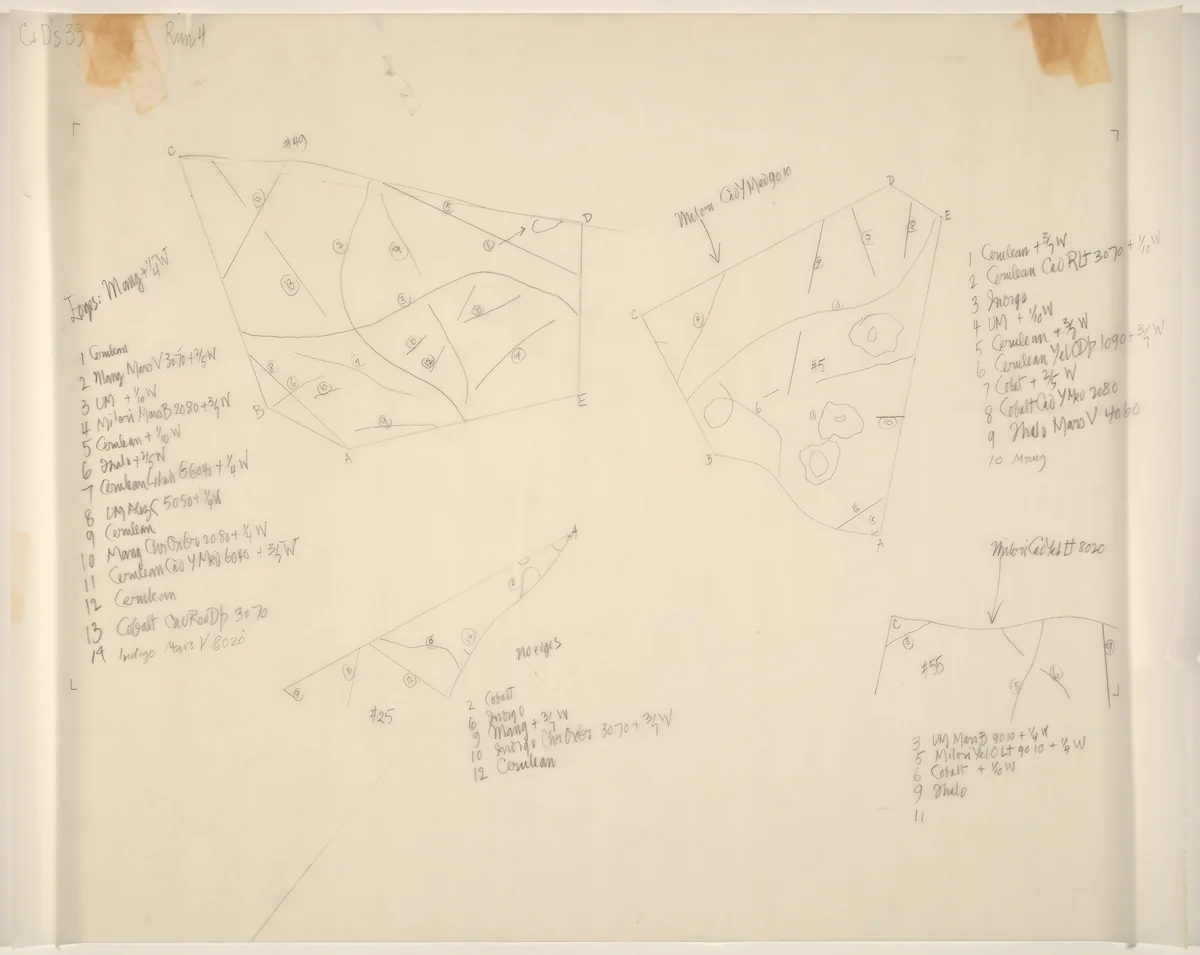 C+D's 33
Run 4
#49
C
D
E
B
A
11
2
9
5
13
3
8
6
10
7
9
10
12
10
4
Loops: Mang + 1/4 W
1 Cerulean
2 Mang Mars V 3070 + 2/5 W
3 UM + 1/10 W
4 Milori Mars B 2080 + 3/7 W
5 Cerulean + 1/10 W
6 Thalo + 2/5 W
7 Cerulean 6040 + 1/4 W
8 UM Aliz C 5050 + 1/4 W
9 Cerulean
10 Mang Chr Ox Gr 2080 + 1/4 W
11 Cerulean Cad Y Med 6040 + 3/7 W
12 Cerulean
13 Cobalt Cad Red Dp 3070
14 Indigo Mars V 8020
Milori Cad Y Med 9010
D
E
C
B
A
#5
3
9
5
8
3
6
10
1 Cerulean + 3/7 W
2 Cerulean Cad R Lt 3070 + 1/10 W
3 Indigo
4 UM + 1/10 W
5 Cerulean + 3/7 W
6 Cerulean Yel O Dp 1090 + 3/7 W
7 Cobalt + 2/5 W
8 Cobalt Cad Y Med 2080
9 Thalo Mars V 4060
10 Mang
A
2
6
12
10
9
12
#25
no edges
2 Cobalt
6 Indigo
9 Mang + 3/7 W
10 Indigo Chr Ox Gr 3070 + 3/7 W
12 Cerulean
Milori Cad Yel Lt 8020
C
3
#55
5
6
9
3 UM Mars B 9010 + 1/4 W
5 Milori Yel O Lt 9010 + 1/4 W
6 Cobalt + 1/10 W
9 Thalo
11